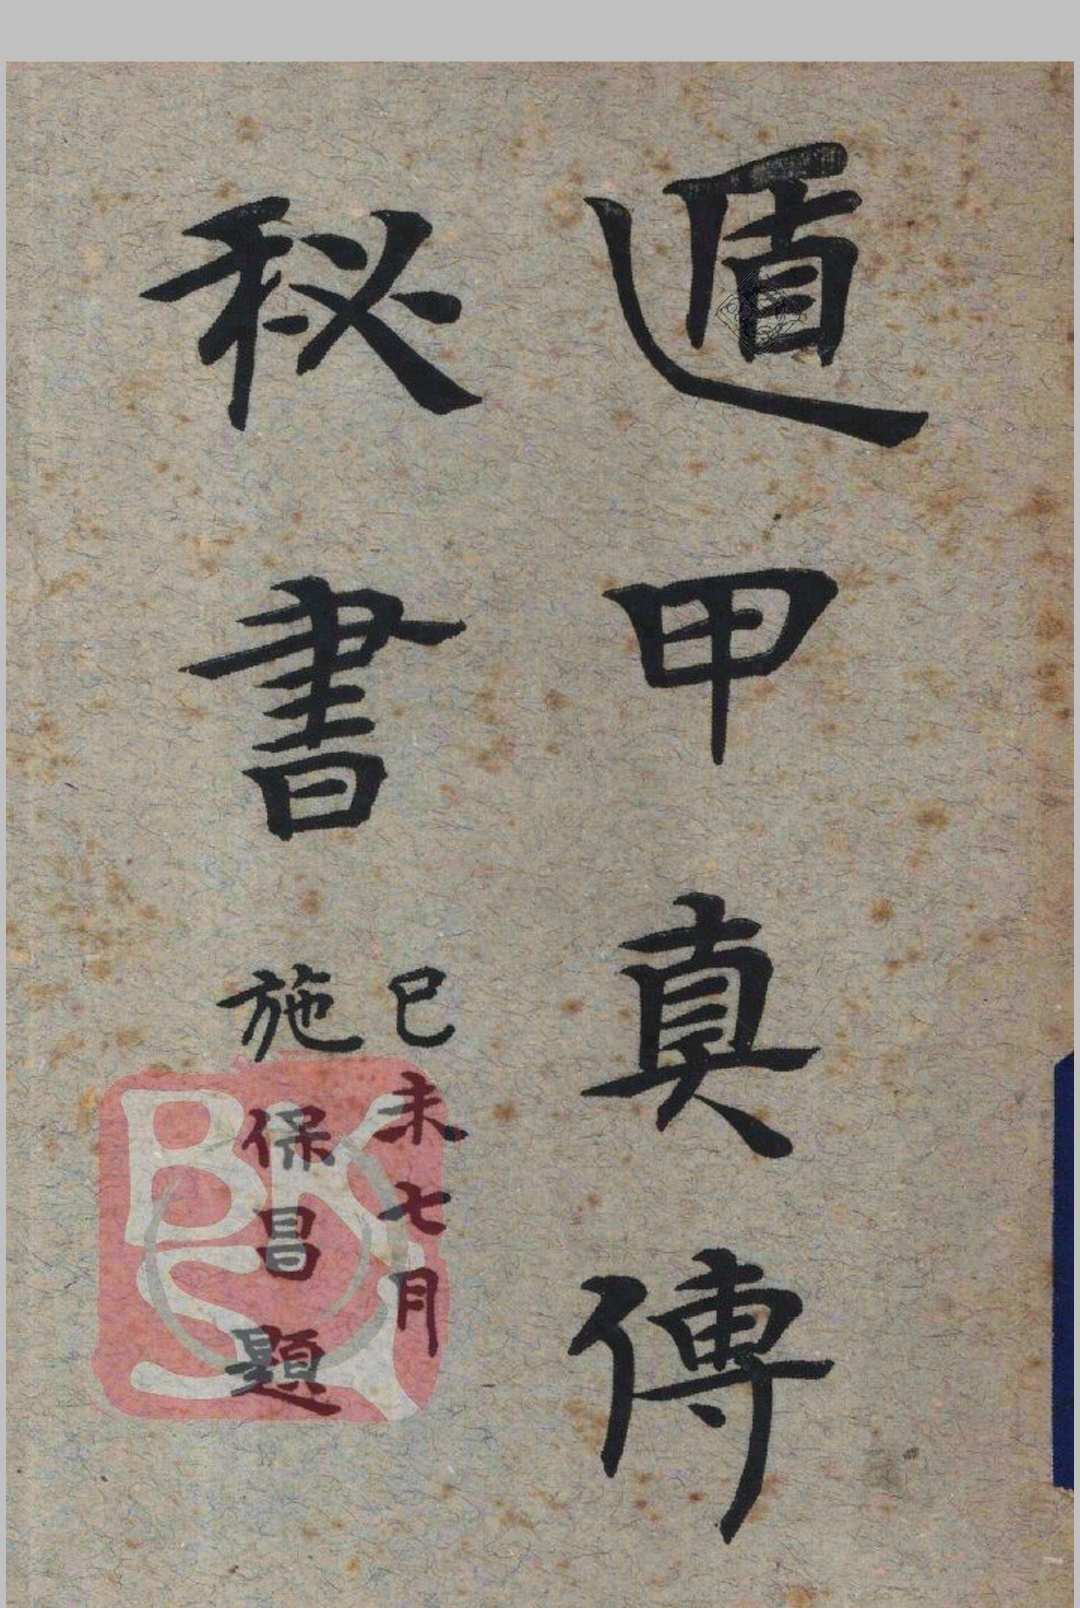 遁甲真傳
秘書
已未七月
施保昌題
BKS